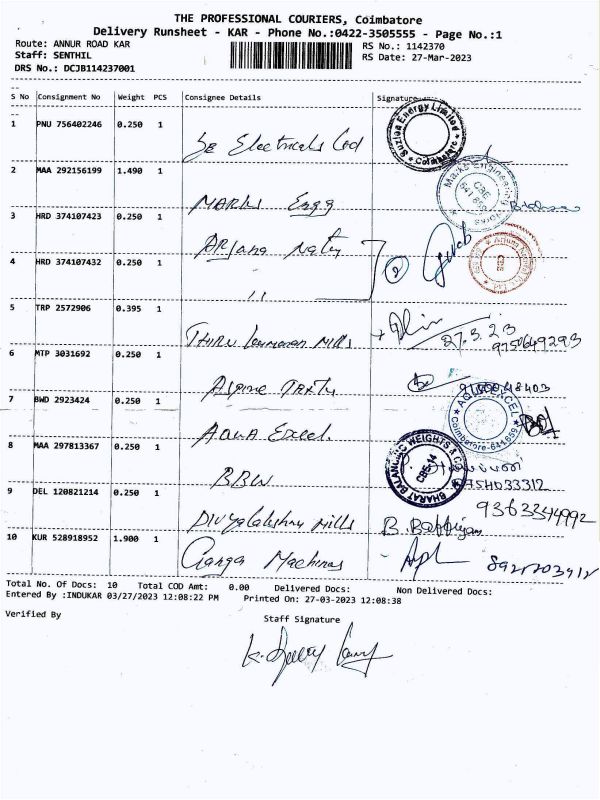 THE PROFESSIONAL COURIERS, Coimbatore
Delivery Runsheet - KAR - Phone No.:0422-3505555 - Page No.:1
Route: ANNUR ROAD KAR
RS No.: 1142370
Staff: SENTHIL
RS Date: 27-Mar-2023
DRS No.: DCJB114237001
S No Consignment No Weight PCS Consignee Details Signature
1 PNU 756402246 0.250 1
Se Electricals Ltd
Suzlon Energy Limited
* Coimbatore *
2 MAA 292156199 1.490 1
MARKS Engg
Marks Engineering Works
CBE
641
3 HRD 374107423 0.250 1
ARjuna
4 HRD 374107432 0.250 1
11
2
5 TRP 2572906 0.395 1
THIRU Mills
27.3.23
9750649293
6 MTP 3031692 0.250 1
Alpine
7 BWD 2923424 0.250 1
Aqua Excel.
AQUA EXCEL
Coimbatore-641 659
8 MAA 297813367 0.250 1
BBW
BHARAT BALANCING WEIGHTS &
CBE-14
9 DEL 120821214 0.250 1
Divyalakshmi Mills
9363344992
10 KUR 528918952 1.900 1
Ganga Machines
Total No. Of Docs: 10 Total COD Amt: 0.00 Delivered Docs: Non Delivered Docs:
Entered By :INDUKAR 03/27/2023 12:08:22 PM Printed On: 27-03-2023 12:08:38
Verified By
Staff Signature